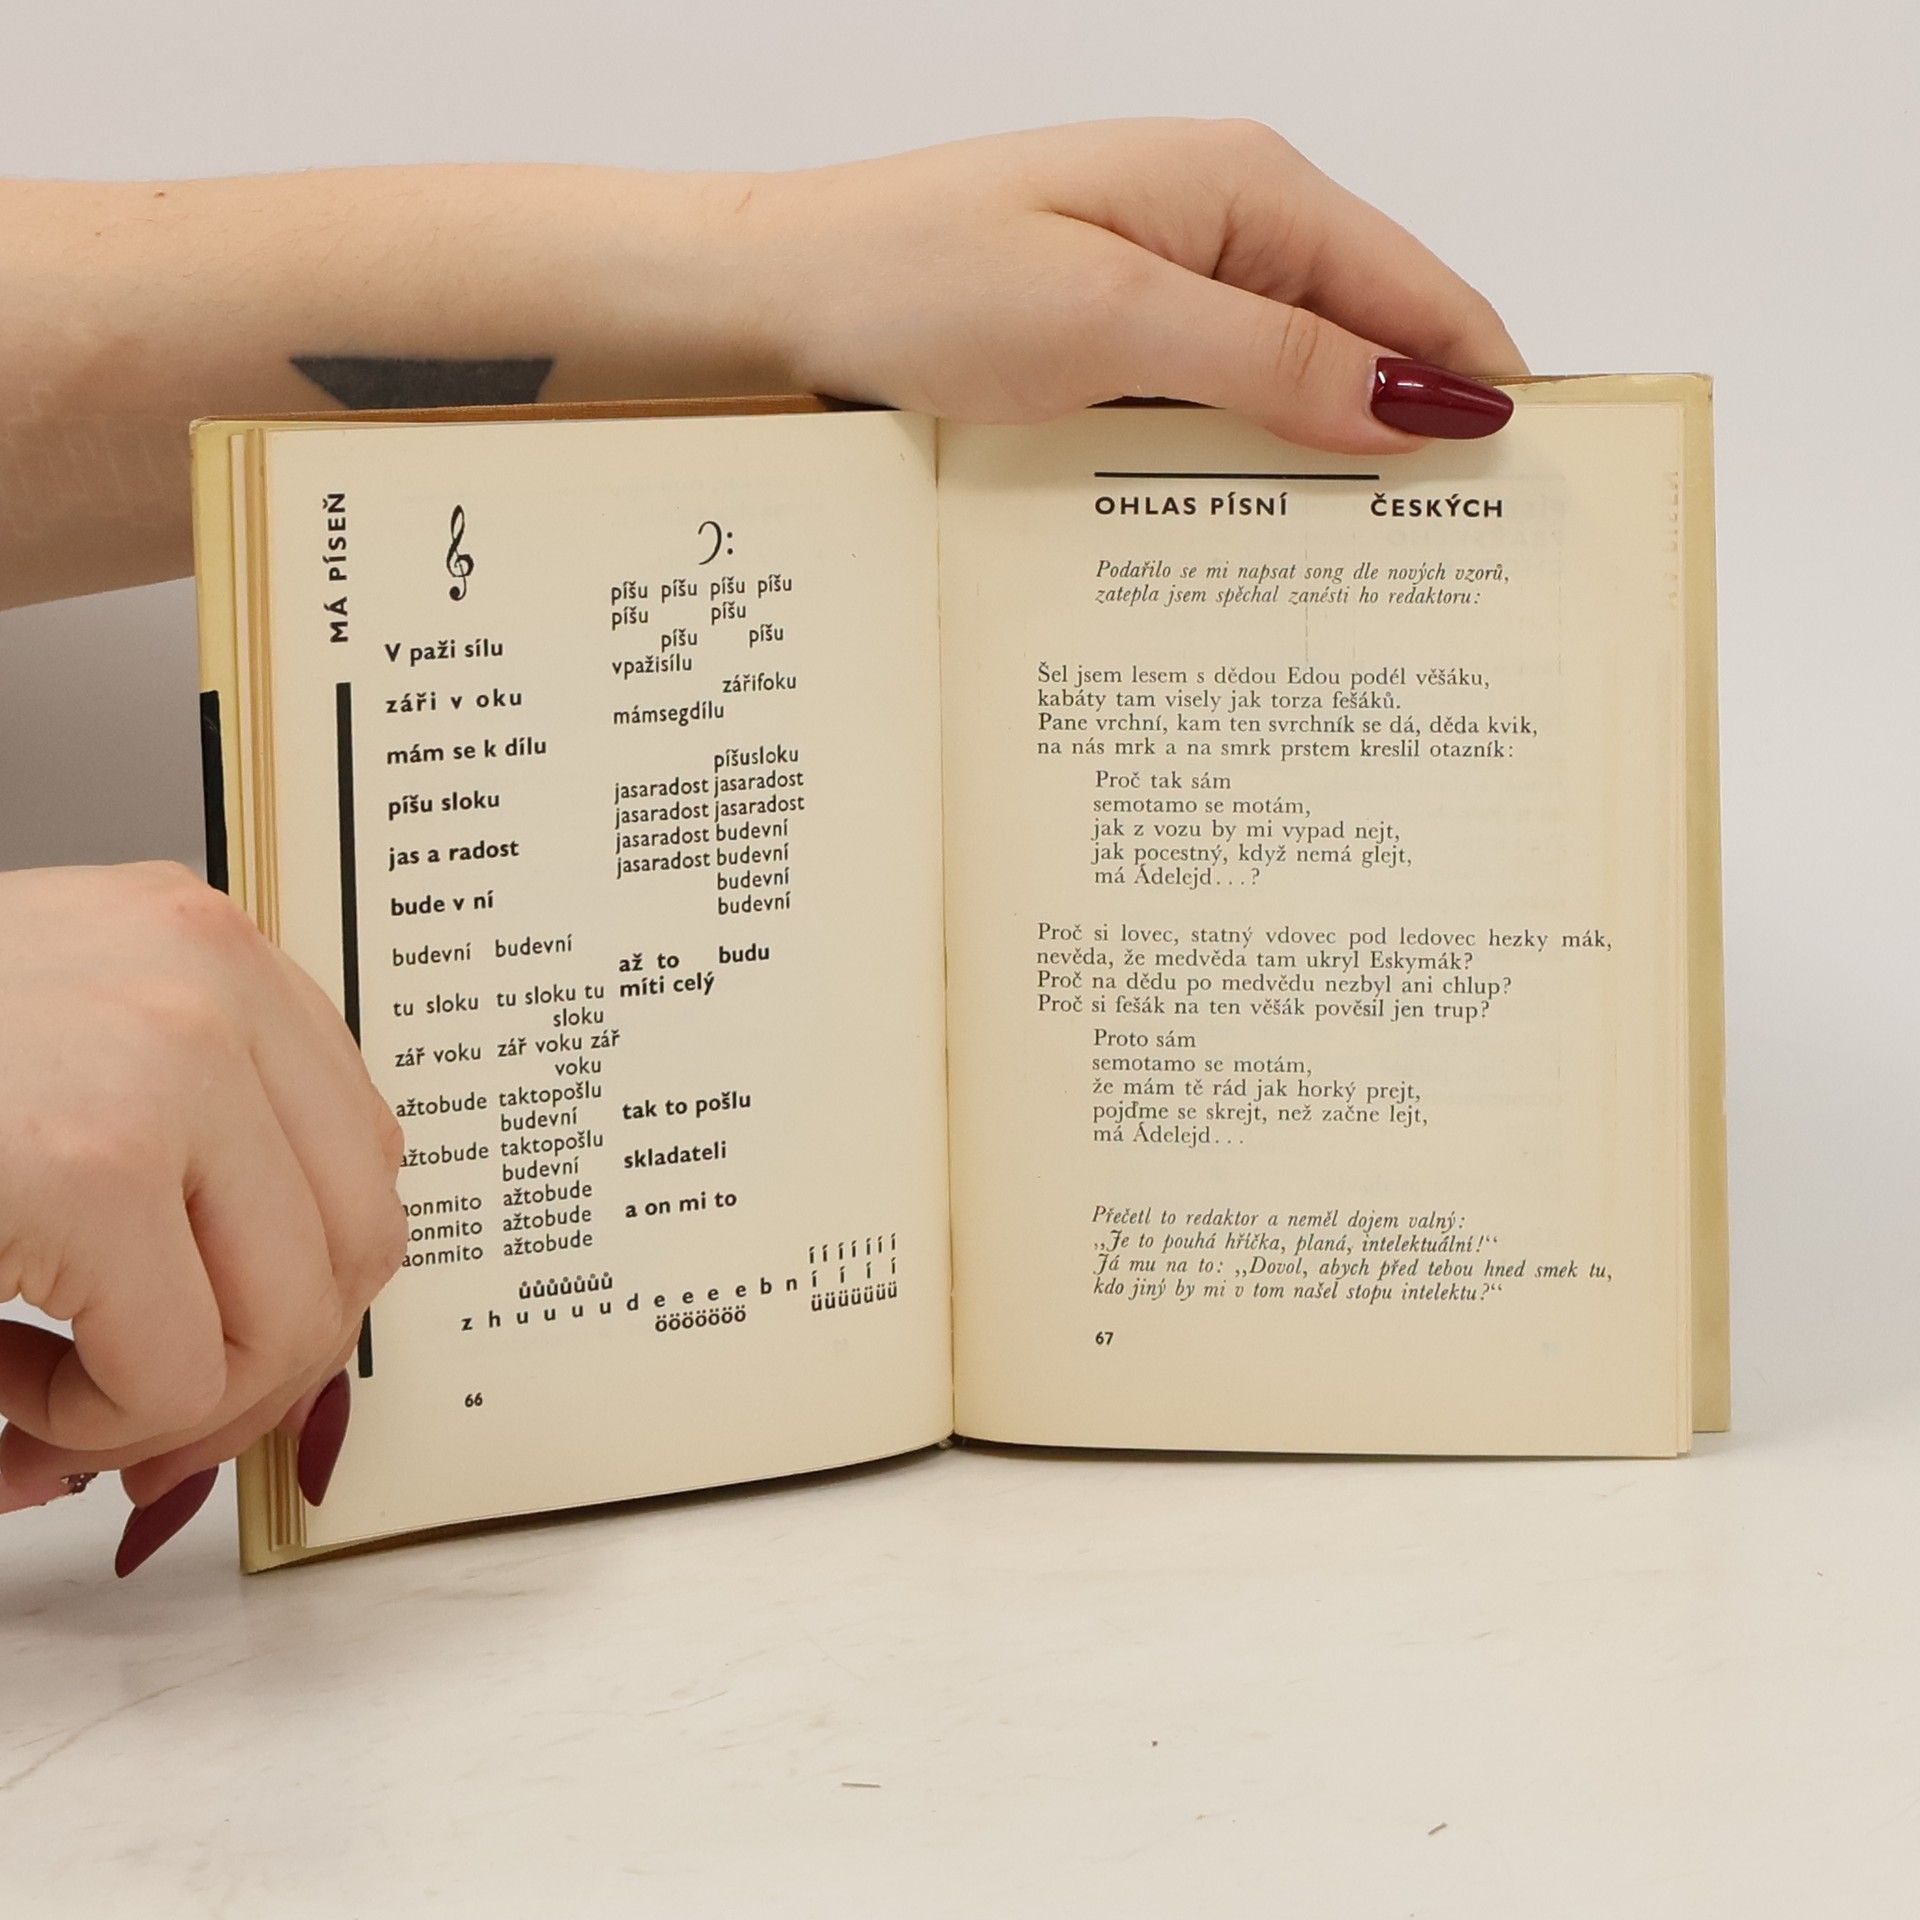 MÁ PÍSEŇ
píšu píšu píšu píšu
píšu píšu
píšu píšu
V paži sílu
vpažisílu
zářifoku
září v oku
mámsegdílu
mám se k dílu
píšusloku
píšu sloku
jasaradost jasaradost
jasaradost jasaradost
jasaradost budevní
jas a radost
jasaradost budevní
budevní
bude v ní
budevní
budevní budevní
až to budu
tu sloku tu sloku tu míti celý
sloku
zář voku zář voku zář
voku
ažtobude taktopošlu
budevní tak to pošlu
ažtobude taktopošlu
budevní skladateli
aonmito ažtobude
onmito ažtobude a on mi to
aonmito ažtobude
í í í í í í í
ůůůůůůů
z h u u u u d e e e e b n í í í í
ööööööö üüüüüüü
66
OHLAS PÍSNÍ ČESKÝCH
Podařilo se mi napsat song dle nových vzorů,
zatepla jsem spěchal zanésti ho redaktoru:
Šel jsem lesem s dědou Edou podél věšáku,
kabáty tam visely jak torza fešáků.
Pane vrchní, kam ten svrchník se dá, děda kvik,
na nás mrk a na smrk prstem kreslil otazník:
Proč tak sám
semotamo se motám,
jak z vozu by mi vypad nejt,
jak pocestný, když nemá glejt,
má Ádelejd...?
Proč si lovec, statný vdovec pod ledovec hezky mák,
nevěda, že medvěda tam ukryl Eskymák?
Proč na dědu po medvědu nezbyl ani chlup?
Proč si fešák na ten věšák pověsil jen trup?
Proto sám
semotamo se motám,
že mám tě rád jak horký prejt,
pojďme se skrejt, než začne lejt,
má Ádelejd...
Přečetl to redaktor a neměl dojem valný:
„Je to pouhá hříčka, planá, intelektuální!“
Já mu na to: „Dovol, abych před tebou hned smek tu,
kdo jiný by mi v tom našel stopu intelektu?“
67